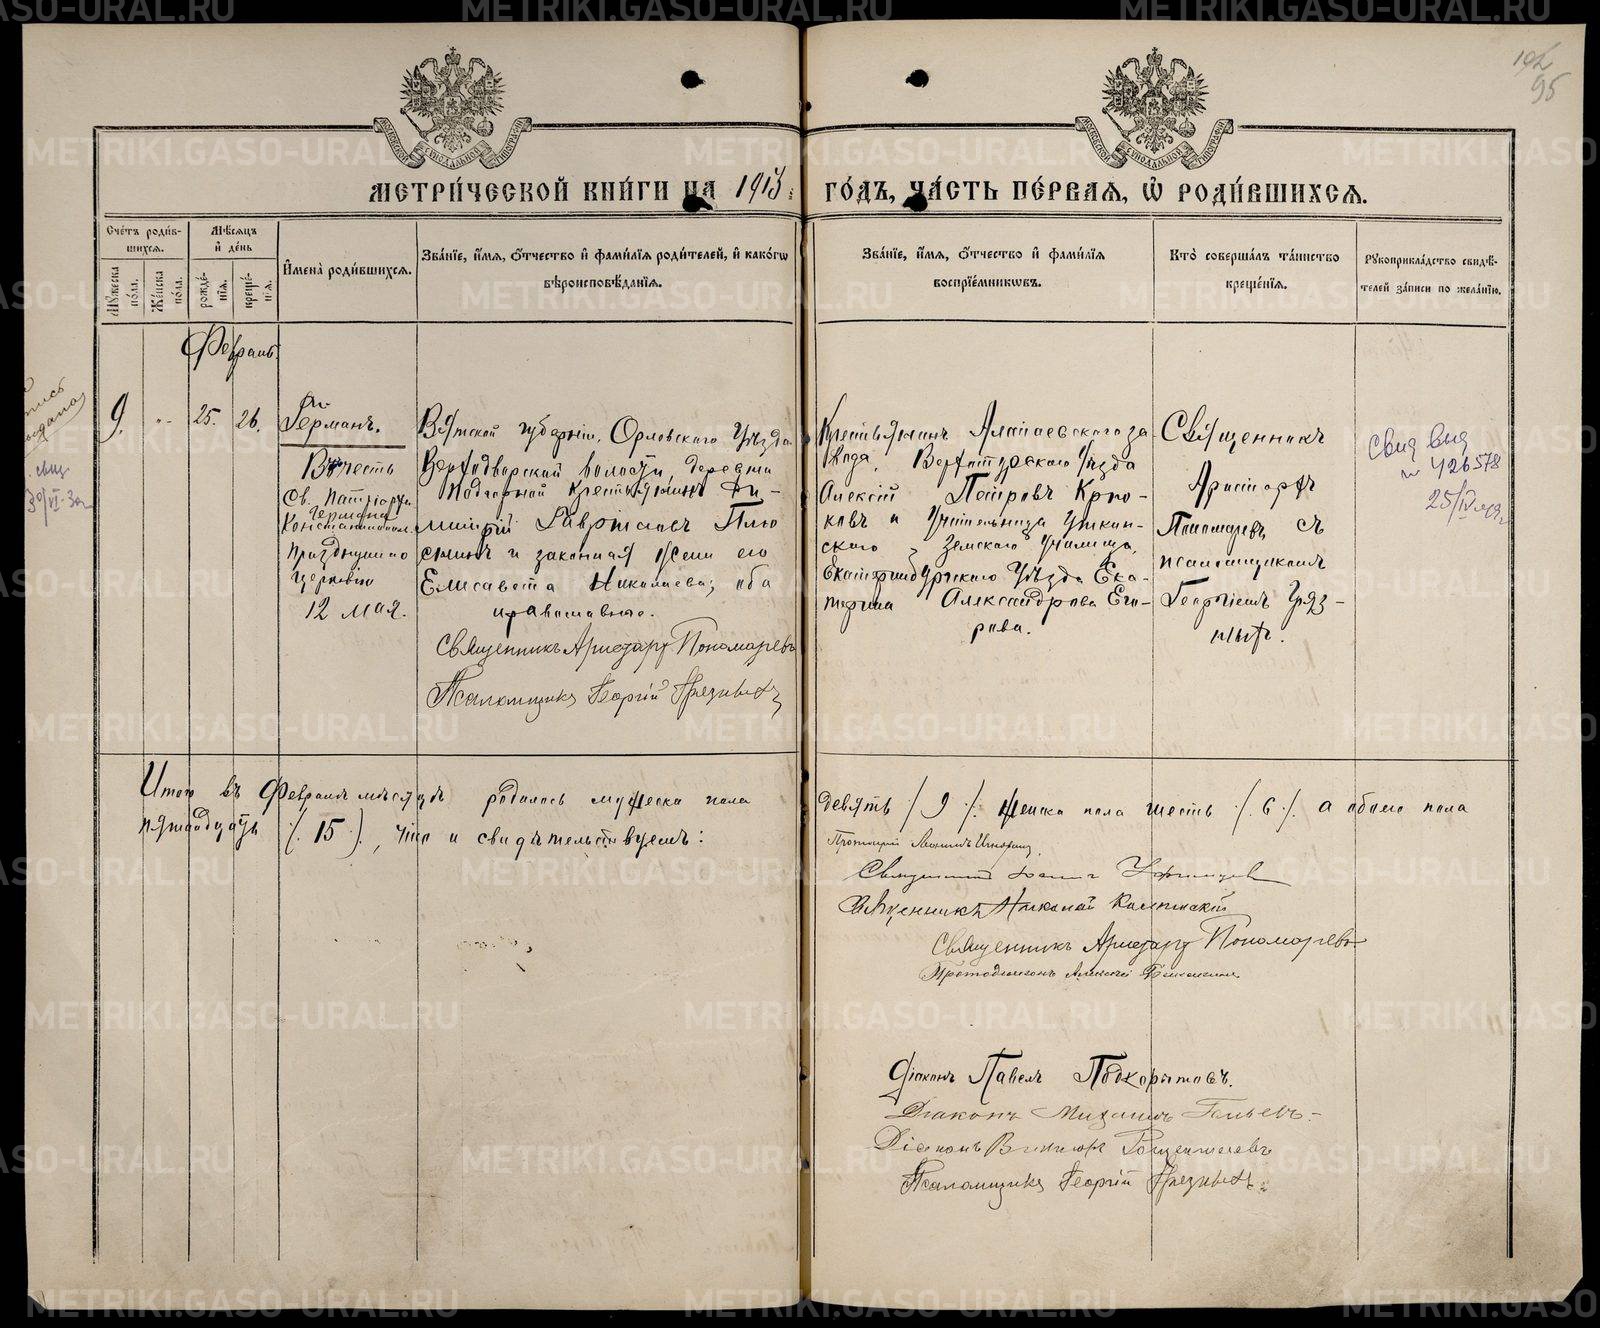 METRIKI.GASO-URAL.RU
95
МОСКОВСКОЙ СѴНОДАЛЬНОЙ ТИПОГРАФІИ
МОСКОВСКОЙ СѴНОДАЛЬНОЙ ТИПОГРАФІИ
МЕТРИ́ЧЕСКОЙ КНИ́ГИ НА 1913 ГО́ДЪ, ЧА́СТЬ ПЕ́РВАЯ, Ѡ РОДИ́ВШИХСЯ.
Сче́тъ роди́в-
шихся.
Му́жеска по́ла.
Же́нска по́ла.
Мѣ́сяцъ
и҆ де́нь
рожде́-
нїя.
креще́-
нїя.
И҆мена̀ роди́вшихся.
Зва́нїе, и҆́мя, ѻ҆́тчество и҆ фами́лїя роди́телей, и҆ како́гѡ
вѣроисповѣ́данїя.
Зва́нїе, и҆́мя, ѻ҆́тчество и҆ фами́лїя
воспрїе́мникѡвъ.
Кто̀ соверша́лъ та́инство
креще́нїя.
Рꙋкоприкла́дство свидѣ́-
телей за́писи по жела́нїю.
Февраль.
9. " 25. 26.
Германъ.
Въ честь
Св. Патріарха
Германа
Константинопол.
празднуемаго
церковію
12 мая.
Вятской губерніи, Орловскаго Уѣзда
Верходворской волости, деревни
Подгорной крестьянинъ Ди-
митрій Гавріиловъ Плю
снинъ и законная жена его
Елисавета Николаева; оба
православные.
Священникъ Аристархъ Пономаревъ
Псаломщикъ Георгій Грязныхъ
Крестьянинъ Алапаевскаго за-
вода, Верхотурскаго Уѣзда
Алексій Петровъ Крю-
ковъ и Учительница Уткин-
скаго Земскаго Училища,
Екатеринбургскаго Уѣзда Ека-
терина Александрова Его-
рова.
Священникъ
Аристархъ
Пономаревъ съ
псаломщикомъ
Георгіемъ Гряз-
ныхъ.
Свид выд
№ 426578
25/IV
Итого въ Февралѣ мѣсяцѣ родилось мужеска пола девять /9/. женска пола шесть /.6/. а обоего пола
пятнадцать /.15./, что и свидѣтельствуемъ:
Протоіерей
Священникъ
Священникъ Николай
Священникъ Аристархъ Пономаревъ
Протодіаконъ Алексій
Діаконъ Павелъ Подкорытовъ.
Діаконъ Михаилъ
Діаконъ Викторъ
Псаломщикъ Георгій Грязныхъ.